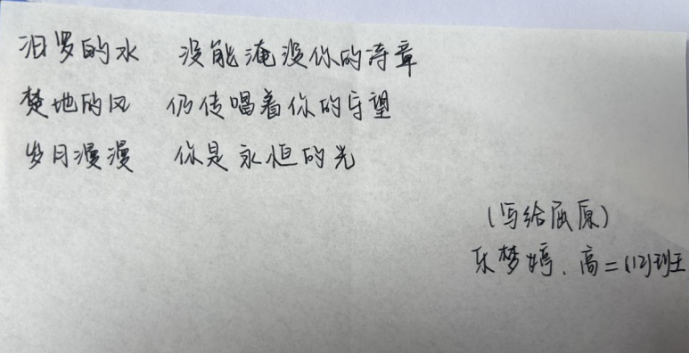 汨罗的水 没能淹没你的诗章
楚地的风 仍传唱着你的守望
岁月漫漫 你是永恒的光
(写给屈原)
乐梦婷、高二(12)班